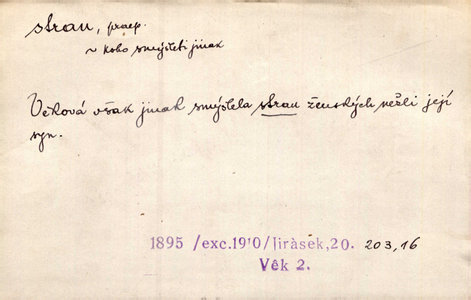 stran, praep.
~ koho smýšleti jinak
Veková však jinak smýšlela stran ženských nežli její
syn.
1895 /exc.1910/Jirásek,20. 203,16
Věk 2.